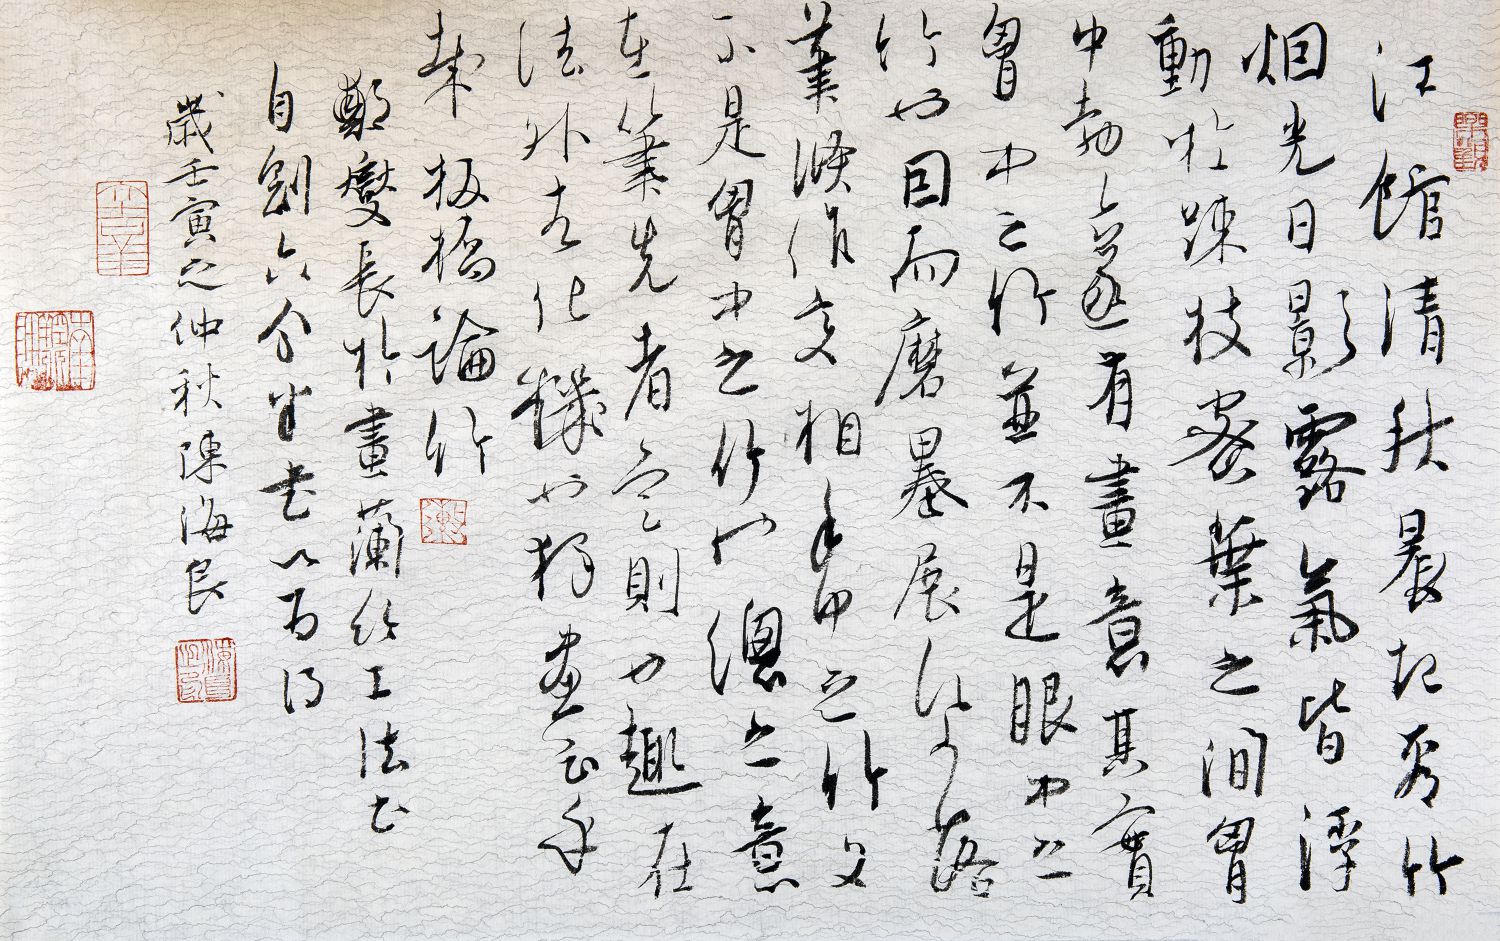 江館清秋晨起看竹
烟光日影露氣皆浮
動於踈枝密葉之間胷
中勃〻遂有畫意其實
胷中之竹並不是眼中之
竹也因而磨墨展紙落
筆倐作变相手中之竹又
不是胷中之竹也總之意
在筆先者定則也趣在
法外者化機也獨畫云乎
哉 板橋論竹
鄭燮長於畫蘭竹工法书
自創六分半书以为得
歲壬寅之仲秋陳海良